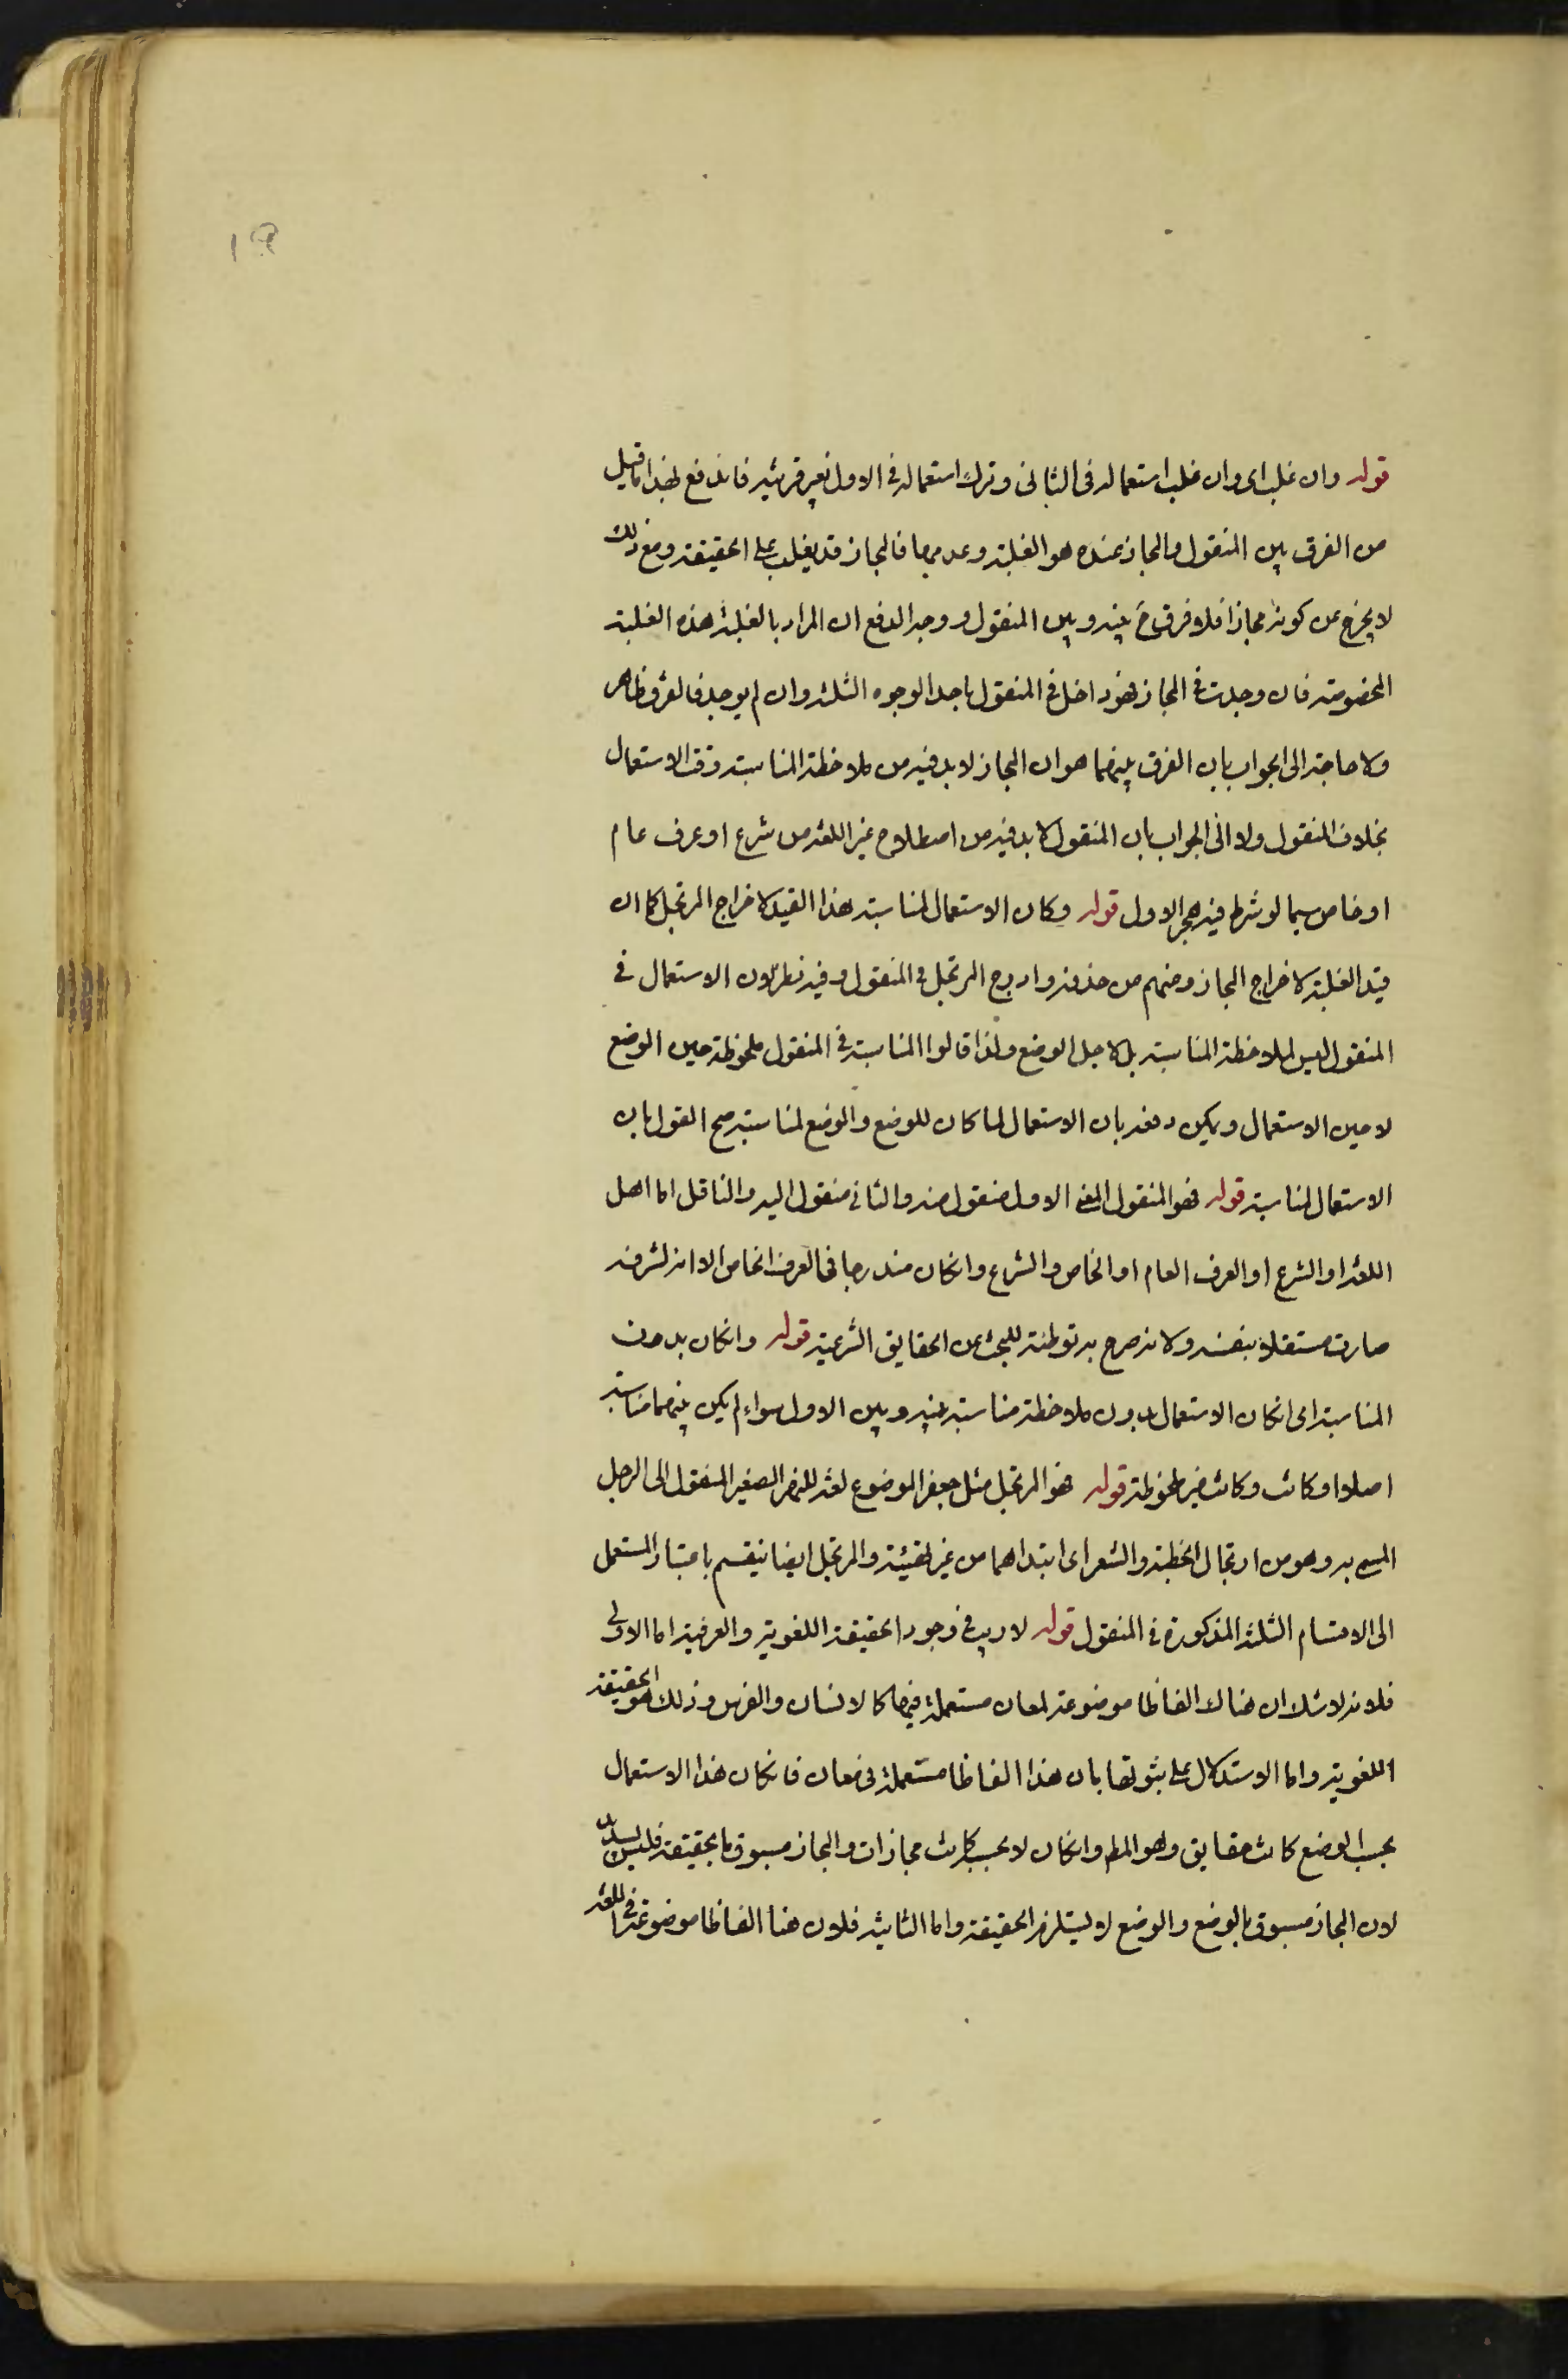 قوله وان غلب اى وان غلب استعماله فى الثانى وترك استعماله فى الاول بغير قرينة فاندفع بهذا ما قيل
من الفرق بين المنقول والمجاز عنده هو الغلبة وعدمها فالمجاز قد يغلب على الحقيقة ومع ذلك
لا يخرج عن كونه مجازا فلا فرق ح بينه وبين المنقول ووجه الدفع ان المراد بالغلبة هذه الغلبة
المخصوصة فان وجدت فى المجاز فهو داخل فى المنقول باحد الوجوه الثلثة وان لم يوجد فالفرق ظاهر
ولا حاجة الى الجواب بان الفرق بينهما هو ان المجاز لا بد فيه من ملاحظة المناسبة وقت الاستعمال
بخلاف المنقول ولا الى الجواب بان المنقول لا بد فيه من اصطلاح غير اللغة من شرع او عرف عام
او خاص سيما لو شرط فيه هجر الاول قوله وكان الاستعمال لمناسبة هذا القيد لاخراج المرتجل كما ان
قيد الغلبة لاخراج المجاز ومنهم من حذفه وادرج المرتجل فى المنقول وفيه نظر لان الاستعمال فى
المنقول ليس لملاحظة المناسبة بل لاجل الوضع ولذا قالوا المناسبة فى المنقول ملحوظة حين الوضع
لا حين الاستعمال ويمكن دفعه بان الاستعمال لما كان للوضع والوضع لمناسبة صح القول بان
الاستعمال لمناسبة قوله فهو المنقول المعنى الاول منقول منه والثانى منقول اليه والناقل اما اهل
اللغة او الشرع او العرف العام او الخاص والشرع وانكان مندرجا فى العرف الخاص الا انه لشرفه
صار مستقلا بنفسه ولانه صرح به توطئة للبحث عن الحقايق الشرعية قوله وانكان بدون
المناسبة اى انكان الاستعمال بدون ملاحظة مناسبة بينه وبين الاول سواء لم يكن بينهما مناسبة
اصلا او كانت وكانت غير ملحوظة قوله فهو المرتجل مثل جعفر الموضوع لغة للنهر الصغير المنقول الى الرجل
المسمى به وهو من ارتجال الخطبة والشعر اى ابتداهما من غير تهيئة والمرتجل ايضا ينقسم باعتبار المستعمل
الى الاقسام الثلثة المذكورة فى المنقول قوله لا ريب فى وجود الحقيقة اللغوية والعرفية اما الاولى
فلانه لا شك ان هناك الفاظا موضوعة لمعان مستعملة فيها كالانسان والفرس وذلك هو الحقيقة
اللغوية واما الاستدلال على ثبوتها بان هذا الفاظا مستعملة فى معان فانكان هذا الاستعمال
بحسب الوضع كانت حقايق وهو المط وانكان لا بحسبه كانت مجازات والمجاز مسبوق بالحقيقة فليس بسديد
لان المجاز مسبوق بالوضع والوضع لا يستلزم الحقيقة واما الثانية فلان هنا الفاظا موضوعة فى اللغة